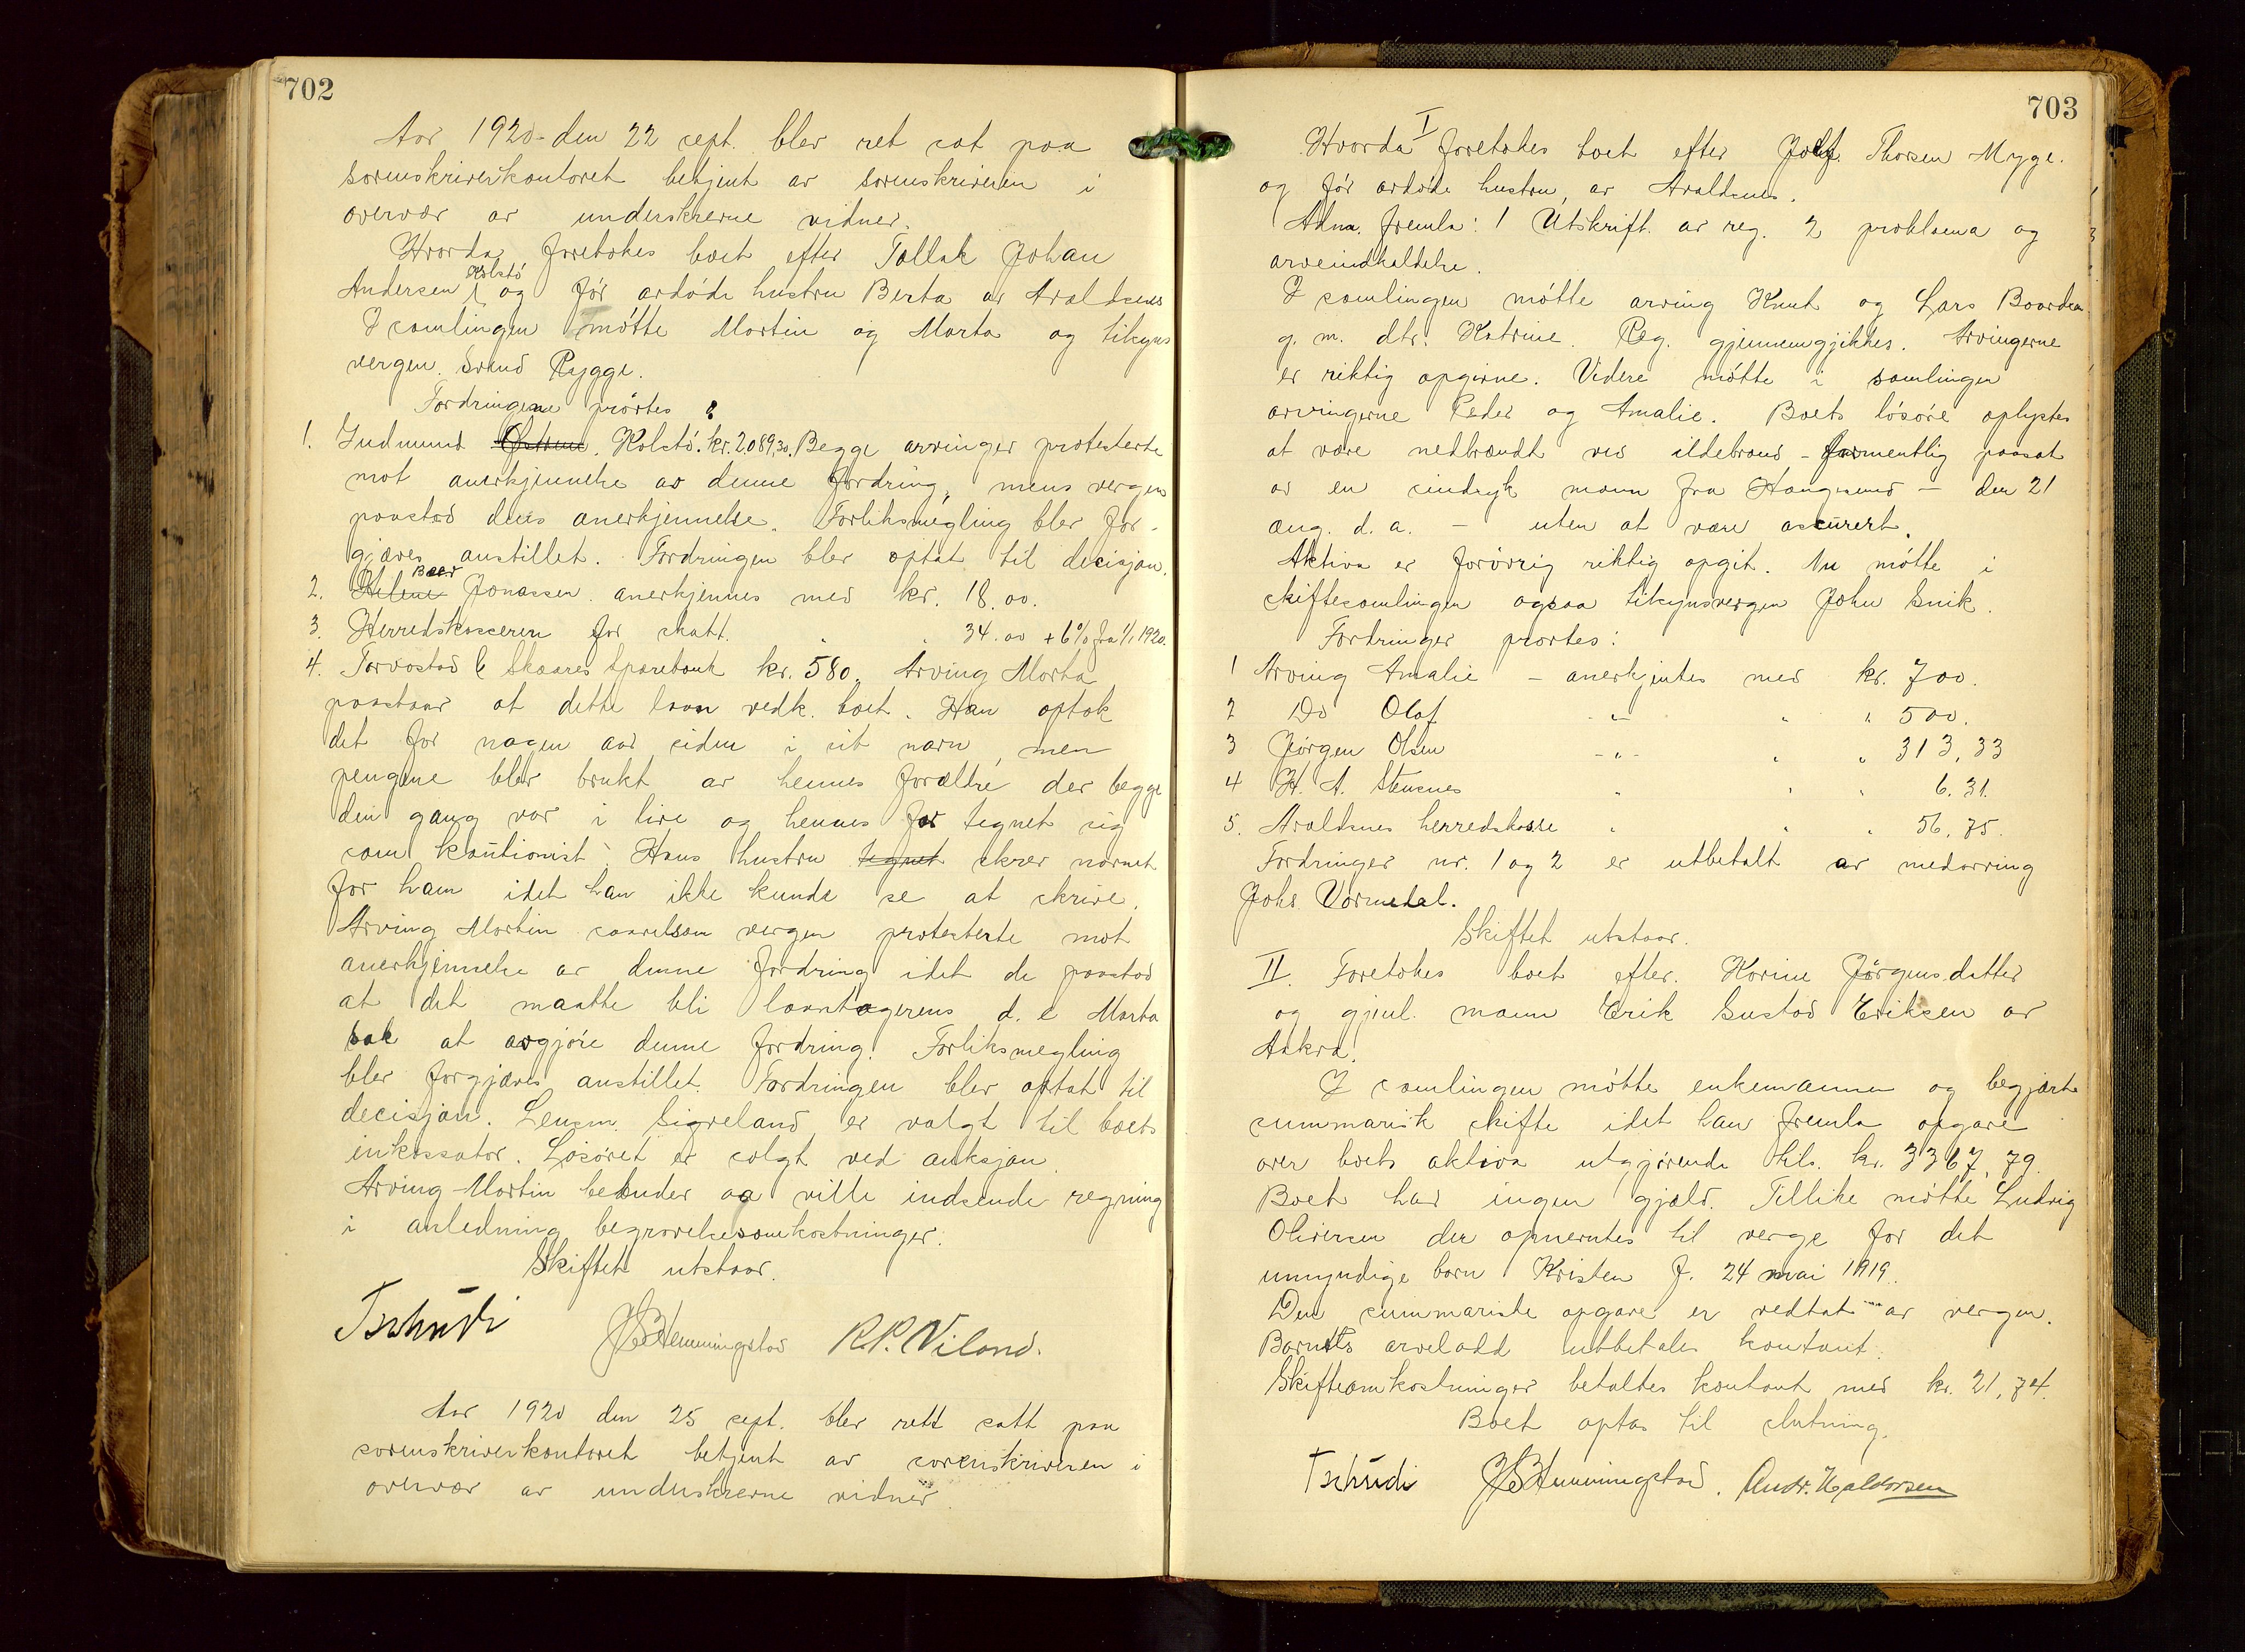 702
Aar 1920 den 22 sept. blev ret sat paa
sorenskriverkontoret betjent av sorenskriveren i
overvær av underskrevne vidner.
Hvorda foretokes boet efter Tallak Johan
Andersen Kolstö og før avdøde hustru Berta av Avaldsnes
I samlingen møtte Martin og Marta og tilsyns
vergen Svend Rygge.
Fordringene prøvtes:
1. Gudmund Kolstö. kr. 2089,30. Begge arvinger protesterte
mot anerkjennelse av denne fordring, mens vergen
paastod dens anerkjennelse. Forliksmegling blev for-
gjæves anstillet. Fordringen blev optat til decisjon.
2. Helene Jonassen anerkjennes med kr. 18.00.
3. Herredskasseren for skatt " " 34.00 + 6% fra 1/1 1920.
4. Torvastad & Skaares Sparebank kr. 580. Arving Marta
paastaar at dette laan vedk. boet. Han optok
det for nogen aar siden i sit navn, men
pengene blev brukt av hennes forældre der begge
den gang var i live og hennes far tegnet sig
som kautionist. Hans hustru tegnet skrev navnet
for ham idet han ikke kunde se at skrive.
Arving Martin saavelsom vergen protesterte mot
anerkjennelse av denne fordring idet de paastod
at det maatte bli laantagerens d. e Marta
sak at avgjøre denne fordring. Forliksmegling
blev forgjæves anstillet. Fordringen blev optat til
decisjon. Lensm. Sigveland er valgt til boets
inkassator. Løsøret er solgt ved auksjon.
Arving Martin bebuder og ville indsende regning
i anledning begravelsesomkostninger.
Skiftet utstaar.
Tschudi JSHemmingstad R.P. Viland.
Aar 1920 den 25 sept. blev rett satt paa
sorenskriverkontoret betjent av sorenskriveren i
overvær av underskrevne vidner.
703
I
Hvorda foretokes boet efter Thorsen Myge.
og før avdøde hustru, av Avaldsnes.
Adm. fremla: 1 Utskrift av reg. 2 proklama og
arveindkaldelse.
I samlingen møtte arving Knut og Lars Baardsen
g. m. dtr. Katrine. Reg. gjennemgjikkes. Arvingerne
er riktig opgivne. Videre møtte i samlingen
arvingerne Peder og Amalie. Boets løsøre oplystes
at være nedbrændt ved ildebrand - formentlig paasat
av en sindsyk mann fra Haugesund - den 21
aug. d. a. - uten at være assurert.
Aktiva er forøvrig riktig opgit. Nu møtte i
skiftesamlingen ogsaa tilsynsvergen John Gnik.
Fordringer prøvtes:
1 Arving Amalie - anerkjentes med kr. 700.
2 Do Olaf -"- " " 500.
3 Jørgen Olsen -"- " " 313,33
4 H. A. Stensnes " " " 6.31.
5. Avaldsnes herredskasse " " " 56,75.
Fordringer nr. 1 og 2 er utbetalt av medarving
Johs Vormedal.
Skiftet utstaar.
II. Foretokes boet efter Korine Jørgensdatter
og gjenl. mann Erik Gustav Eriksen av
Aakra.
I samlingen møtte enkemannen og begjærte
summarisk skifte idet han fremla opgave
over boets aktiva utgjørende tils. kr. 3367,79.
Boet har ingen gjæld. Tillike møtte Ludvig
Oliversen der opnevntes til verge for det
umyndige barn Kristen f. 24 mai 1919.
Den summariske opgave er vedtat av vergen.
Barnets arvelodd utbetales kontant.
Skifteomkostninger betaltes kontant med kr. 21,74.
Boet optas til slutning.
Tschudi JSHemmingstad. Andr. Halvorsen